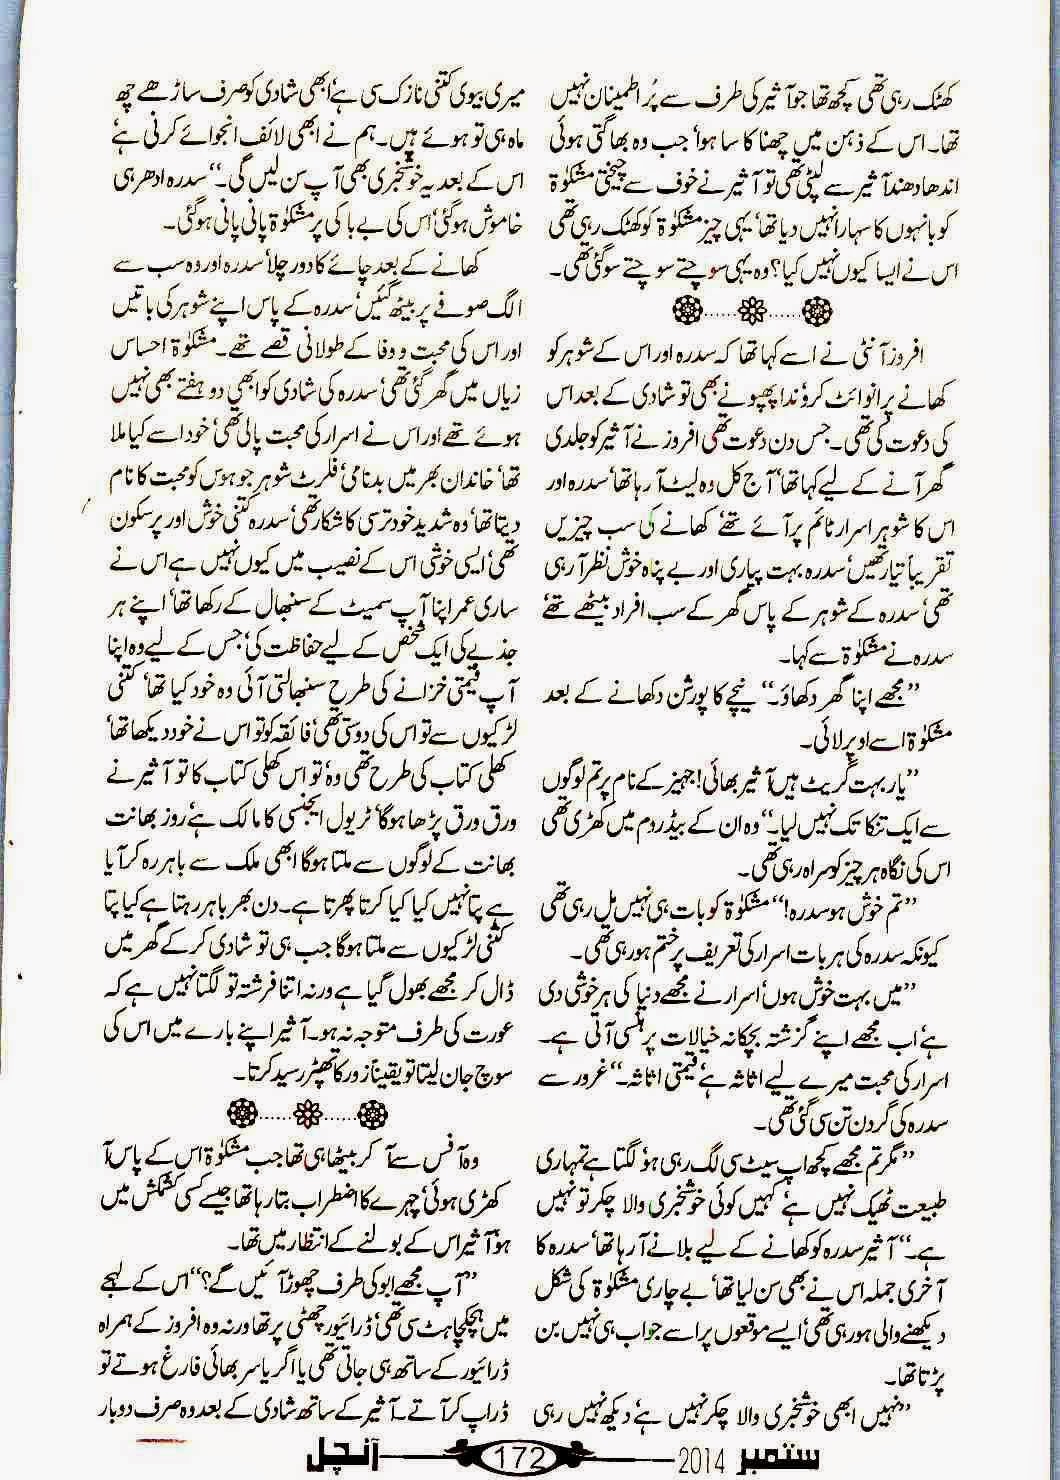 کھٹک رہی تھی کچھ تھا جو آثیر کی طرف سے پُر اطمینان نہیں
تھا۔ اس کے ذہن میں چھنا کا سا ہوا‘ جب وہ بھاگتی ہوئی
اندھا دھند آثیر سے لپٹی تھی تو آثیر نے خوف سے چیختی مشکوٰۃ
کو بانہوں کا سہارا نہیں دیا تھا‘ یہی چیز مشکوٰۃ کو کھٹک رہی تھی
اس نے ایسا کیوں نہیں کیا؟ وہ یہی سوچتے سوچتے سو گئی تھی۔
افروز آنٹی نے اسے کہا تھا کہ سدرہ اور اس کے شوہر کو
کھانے پر انوائٹ کرو‘ ندا پھپو نے بھی تو شادی کے بعد اس
کی دعوت کی تھی۔ جس دن دعوت تھی افروز نے آثیر کو جلدی
گھر آنے کے لیے کہا تھا‘ آج کل وہ لیٹ آ رہا تھا‘ سدرہ اور
اس کا شوہر اسرار ٹائم پر آئے تھے‘ کھانے کی سب چیزیں
تقریباً تیار تھیں‘ سدرہ بہت پیاری اور بے پناہ خوش نظر آ رہی
تھی‘ سدرہ کے شوہر کے پاس گھر کے سب افراد بیٹھے تھے‘
سدرہ نے مشکوٰۃ سے کہا۔
”مجھے اپنا گھر دکھاؤ۔“ نیچے کا پورشن دکھانے کے بعد
مشکوٰۃ اسے اوپر لائی۔
”یار بہت گریٹ ہیں آثیر بھائی! جہیز کے نام پر تم لوگوں
سے ایک تنکا تک نہیں لیا۔“ وہ ان کے بیڈ روم میں کھڑی تھی
اس کی نگاہ ہر چیز کو سراہ رہی تھی۔
”تم خوش ہو سدرہ!“ مشکوٰۃ کو بات ہی نہیں مل رہی تھی
کیونکہ سدرہ کی ہر بات اسرار کی تعریف پر ختم ہو رہی تھی۔
”میں بہت خوش ہوں‘ اسرار نے مجھے دنیا کی ہر خوشی دی
ہے‘ اب مجھے اپنے گزشتہ بچکانہ خیالات پر ہنسی آتی ہے۔
اسرار کی محبت میرے لیے اثاثہ ہے‘ قیمتی اثاثہ۔“ غرور سے
سدرہ کی گردن تن سی گئی تھی۔
”مگر تم مجھے کچھ اپ سیٹ سی لگ رہی ہو‘ لگتا ہے تمہاری
طبیعت ٹھیک نہیں ہے‘ کہیں کوئی خوشخبری والا چکر تو نہیں
ہے۔“ آثیر سدرہ کو کھانے کے لیے بلانے آ رہا تھا‘ سدرہ کا
آخری جملہ اس نے بھی سن لیا تھا‘ بے چاری مشکوٰۃ کی شکل
دیکھنے والی ہو رہی تھی‘ ایسے موقعوں پر اسے جواب ہی نہیں بن
پڑتا تھا۔
”نہیں ابھی خوشخبری والا چکر نہیں ہے‘ دیکھ نہیں رہی
میری بیوی کتنی نازک سی ہے‘ ابھی شادی کو صرف ساڑھے چھ
ماہ ہی تو ہوئے ہیں۔ ہم نے ابھی لائف انجوائے کرنی ہے‘
اس کے بعد یہ خوشخبری بھی آپ سن لیں گی۔“ سدرہ ادھر ہی
خاموش ہو گئی‘ اس کی بے باکی پر مشکوٰۃ پانی پانی ہو گئی۔
کھانے کے بعد چائے کا دور چلا‘ سدرہ اور وہ سب سے
الگ صوفے پر بیٹھ گئیں‘ سدرہ کے پاس اپنے شوہر کی باتیں
اور اس کی محبت و وفا کے طولانی قصے تھے۔ مشکوٰۃ احساس
زیاں میں گھر گئی تھی‘ سدرہ کی شادی کو ابھی دو ہفتے بھی نہیں
ہوئے تھے اور اس نے اسرار کی محبت پالی تھی‘ خود اسے کیا ملا
تھا‘ خاندان بھر میں بدنامی‘ فلرٹ شوہر جو ہوس کو محبت کا نام
دیتا تھا‘ وہ شدید خود ترسی کا شکار تھی‘ سدرہ کتنی خوش اور پرسکون
تھی‘ ایسی خوشی اس کے نصیب میں کیوں نہیں ہے اس نے
ساری عمر اپنا آپ سمیٹ کے سنبھال کے رکھا تھا‘ اپنے ہر
جذبے کی ایک شخص کے لیے حفاظت کی‘ جس کے لیے وہ اپنا
آپ قیمتی خزانے کی طرح سنبھالتی آئی وہ خود کیا تھا‘ کتنی
لڑکیوں سے تو اس کی دوستی تھی‘ فائقہ کو تو اس نے خود دیکھا تھا‘
کھلی کتاب کی طرح تھی وہ‘ تو اس کھلی کتاب کا تو آثیر نے
ورق ورق پڑھا ہو گا‘ ٹریول ایجنسی کا مالک ہے‘ روز بھانت
بھانت کے لوگوں سے ملتا ہو گا ابھی ملک سے باہر رہ کر آیا
ہے پتا نہیں کیا کیا کرتا پھرتا ہے۔ دن بھر باہر رہتا ہے کیا پتا
کتنی لڑکیوں سے ملتا ہو گا جب ہی تو شادی کر کے گھر میں
ڈال کر مجھے بھول گیا ہے ورنہ اتنا فرشتہ تو لگتا نہیں ہے کہ
عورت کی طرف متوجہ نہ ہو۔ آثیر اپنے بارے میں اس کی
سوچ جان لیتا تو یقیناً زور کا تھپڑ رسید کرتا۔
وہ آفس سے آ کر بیٹھا ہی تھا جب مشکوٰۃ اس کے پاس آ
کھڑی ہوئی‘ چہرے کا اضطراب بتا رہا تھا جیسے کسی کشمکش میں
ہو‘ آثیر اس کے بولنے کے انتظار میں تھا۔
”آپ مجھے ابو کی طرف چھوڑ آئیں گے؟“ اس کے لہجے
میں ہچکچاہٹ سی تھی‘ ڈرائیور چھٹی پر تھا ورنہ وہ افروز کے ہمراہ
ڈرائیور کے ساتھ ہی جاتی تھی یا اگر یاسر بھائی فارغ ہوتے تو
ڈراپ کر آتے۔ آثیر کے ساتھ شادی کے بعد وہ صرف دو بار
ستمبر 2014 172 آنچل